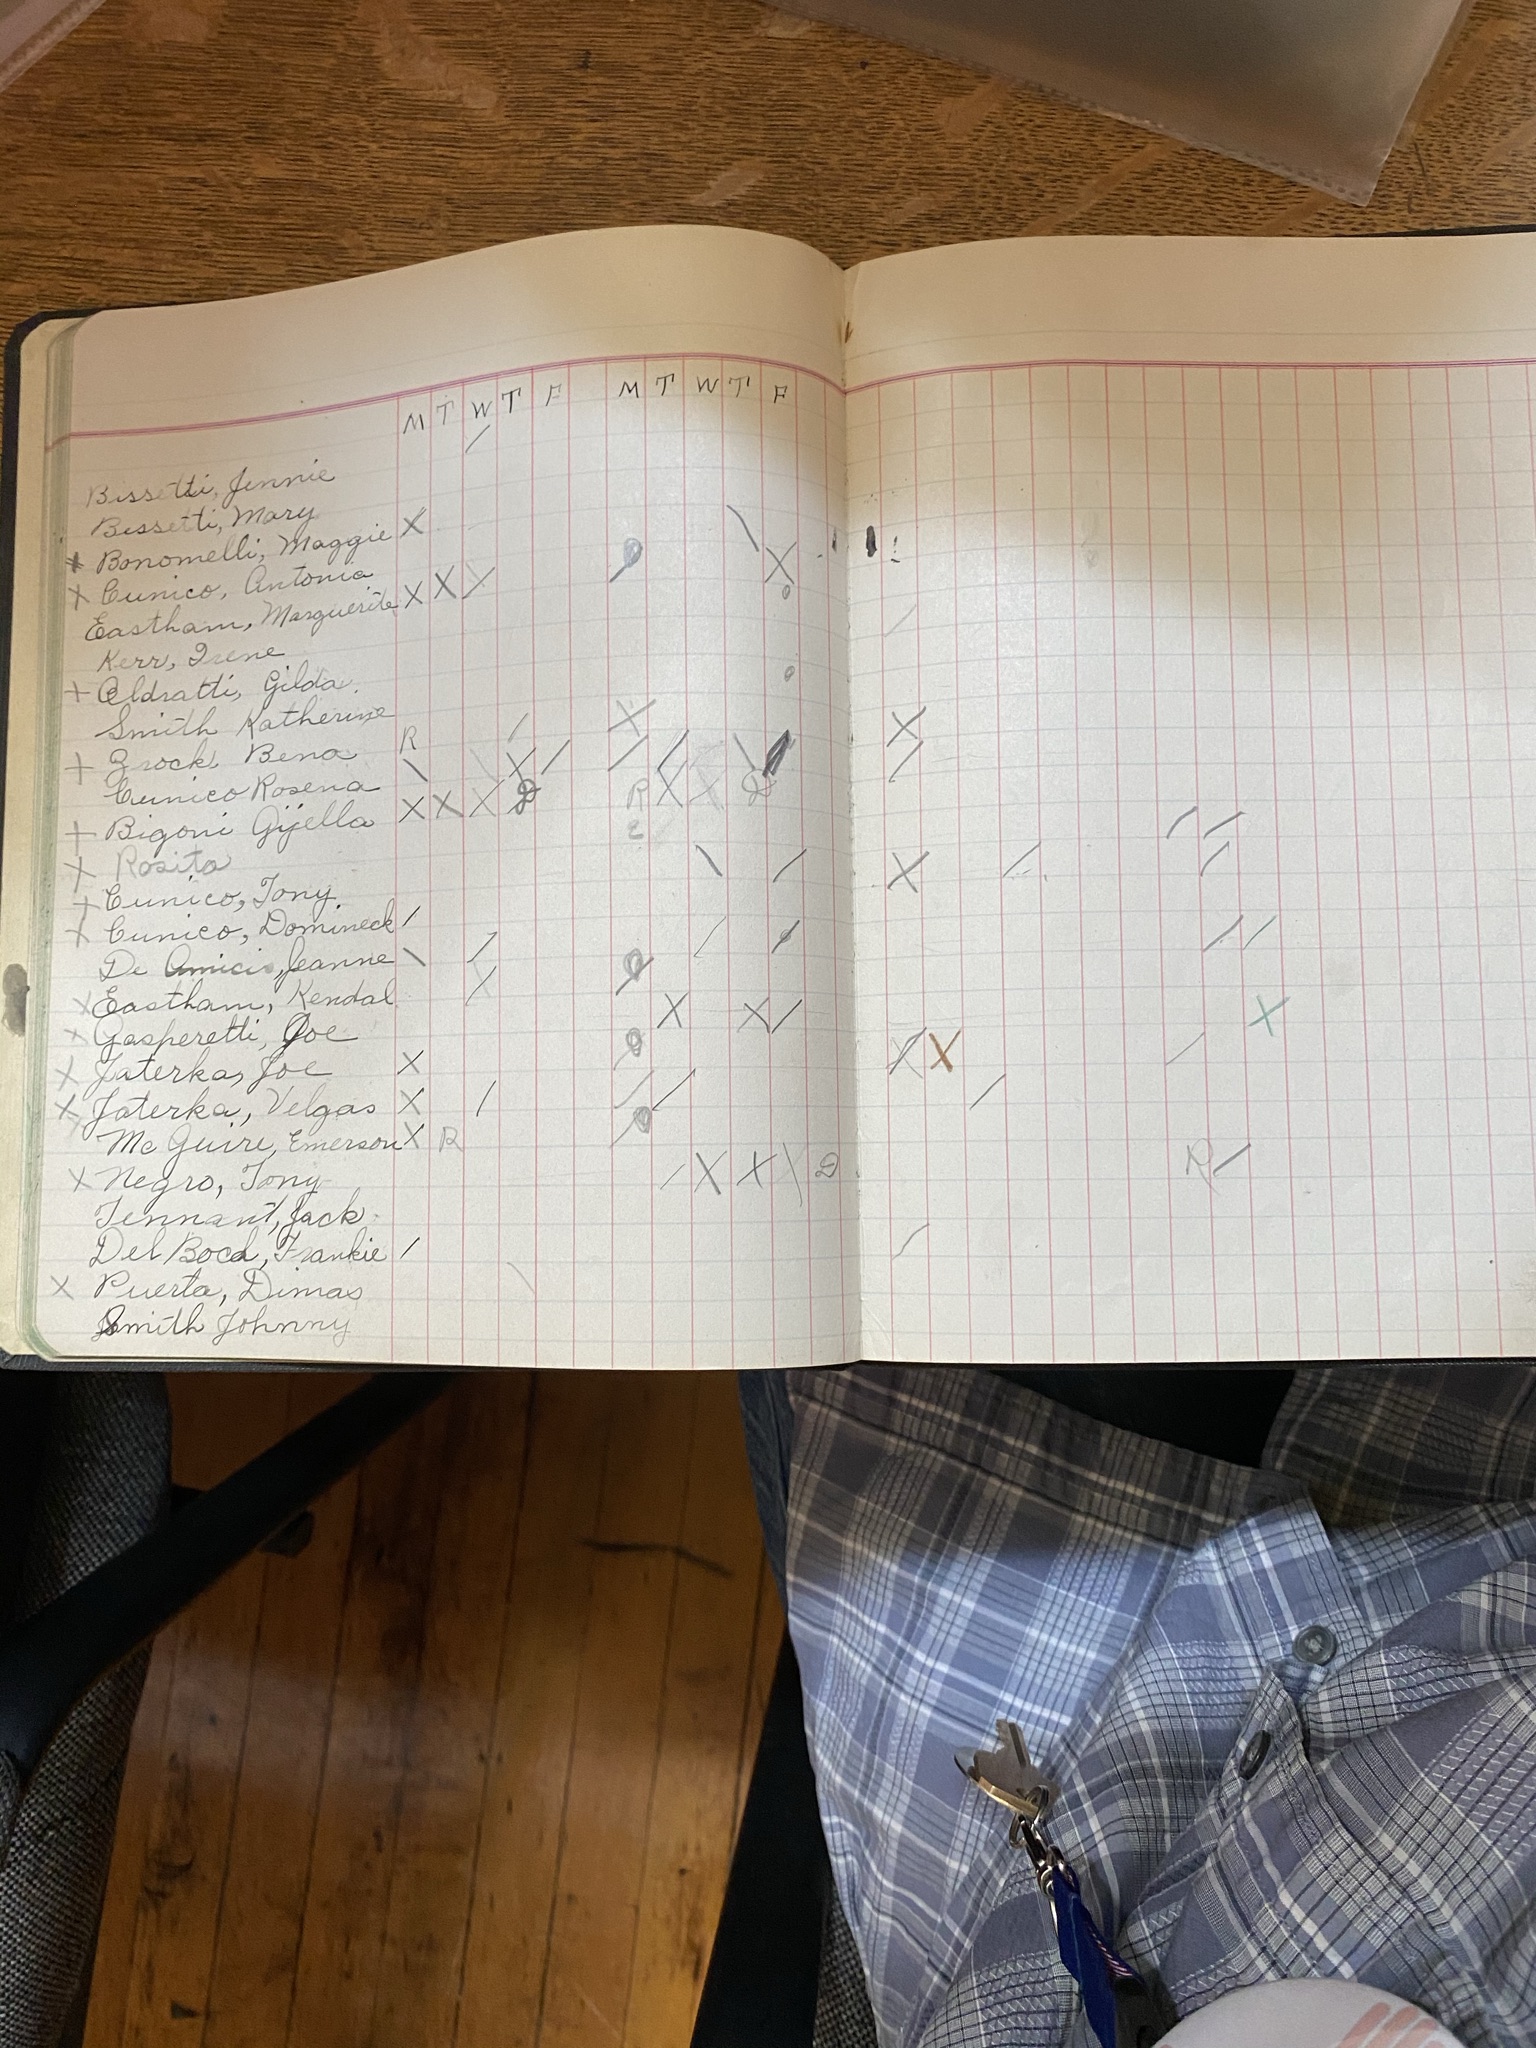 M T W T F M T W T F
/
Bissetti, Jennie
Bissetti, Mary X
x Bonomelli, Maggie
X Cunico, Antonia X X X
Eastham, Marguerite
Kerr, Irene
+ Oldratti, Gilda.
Smith Katherine R
+ Brock, Bena \
Cunico Rosena X X X D
+ Bigoni Gijella
X Rosita
+ Cunico, Tony
X Cunico, Domineck /
De Amicis, Jeanne \ /
X Eastham, Kendal
X Gasperetti, Joe
X Jaterka, Joe X
X Jaterka, Velgas X /
Mc Guire, Emerson X R
X Negro, Tony X X D R /
Tennant, Jack
Del Boca, Frankie /
X Puerta, Dimas
Smith Johnny